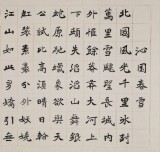 沁園春雪
北國風光千里冰封
萬里雪飄望長城内
外惟餘莽莽大河上
下頓失滔滔山舞銀
蛇原馳蠟象欲與天
公試比高須晴日看
紅裝素裹分外妖嬈
江山如此多嬌引無